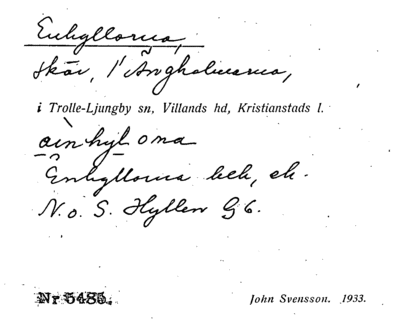 Enhyllorna,
skär, i Ängholmarna,
i Trolle-Ljungby sn, Villands hd, Kristianstads l.
äinhyl ona
Enhyllorna bch, ek.
N. o. S. Hyllen G6.
Nr 5485.
John Svensson. 1933.